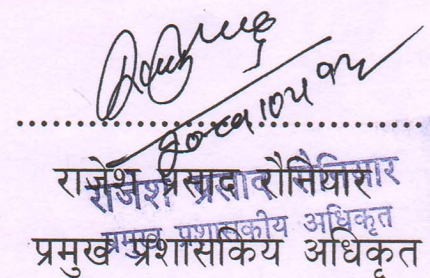 राजेश प्रसाद रौनियार
राजेश प्रसाद रौनियार
प्रमुख प्रशासकीय अधिकृत
प्रमुख प्रशासकिय अधिकृत